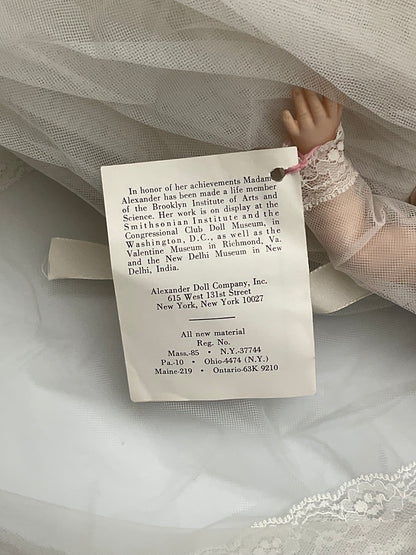 In honor of her achievements Madame
Alexander has been made a life member
of the Brooklyn Institute of Arts and
Science. Her work is on display at the
Smithsonian Institute and the
Congressional Club Doll Museum, in
Washington, D.C., as well as the
Valentine Museum in Richmond, Va.
and the New Delhi Museum in New
Delhi, India.
Alexander Doll Company, Inc.
615 West 131st Street
New York, New York 10027
All new material
Reg. No.
Mass.-85 • N.Y.-37744
Pa.-10 • Ohio-4474 (N.Y.)
Maine-219 • Ontario-63K 9210